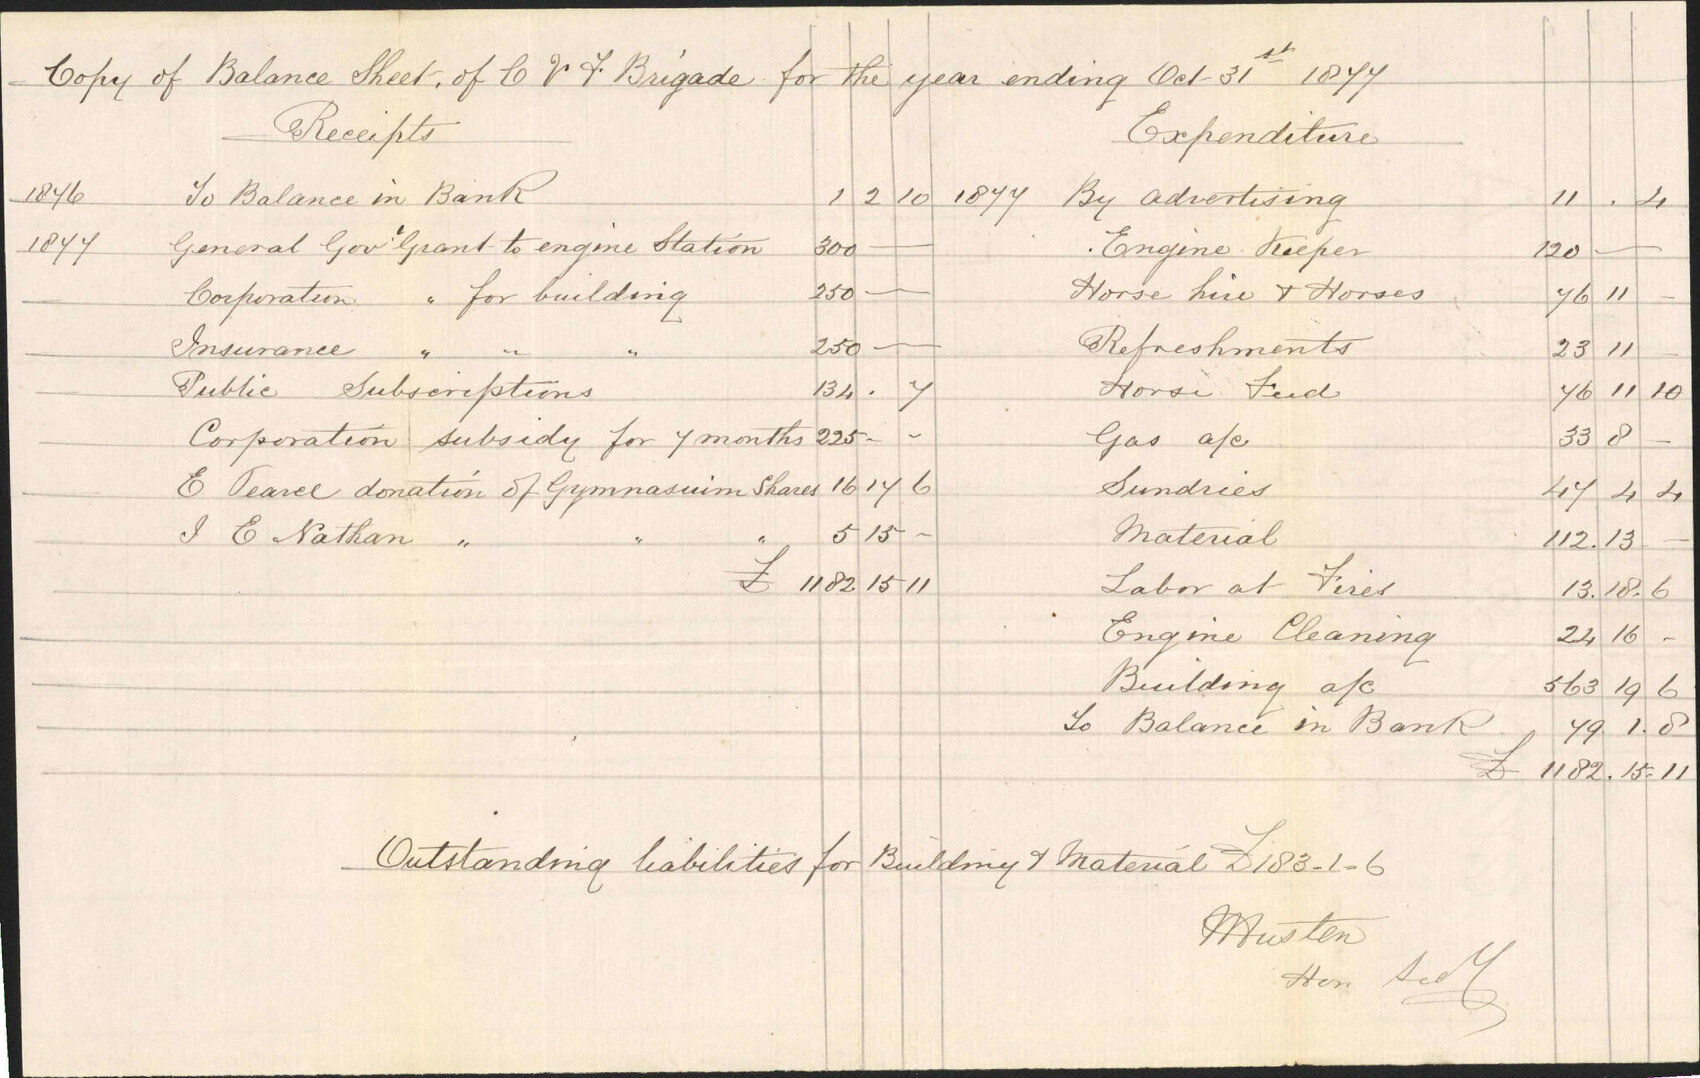 Copy of Balance Sheet, of C V F Brigade for the year ending Oct 31st 1877
Receipts Expenditure
1876 To Balance in Bank 1 2 10 1877 By advertising 11 . 4
1877 General Govt Grant to engine Station 300 — Engine Keeper 120 —
Corporation " for building 250 — Horse hire & Horses 76 11 -
Insurance " " " 250 — Refreshments 23 11 -
Public Subscriptions 134 . 7 Horse Feed 76 11 10
Corporation subsidy for 7 months 225 - - Gas a/c 33 8 -
E Pearce donation of Gymnasium Shares 16 17 6 Sundries 47 4 4
J E Nathan " " " 5 15 - Material 112.13 -
£ 1182 15 11 Labor at Fires 13.18.6
Engine Cleaning 24 16 -
Building a/c 563 19 6
To Balance in Bank 79.1.8
£ 1182.15.11
Outstanding liabilities for Building & Material £183-1-6
Hon Secy